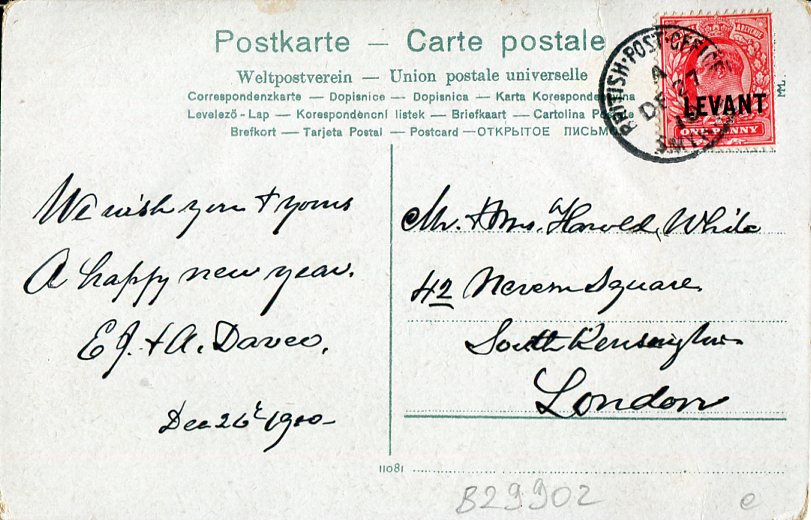 Postkarte — Carte postale
Weltpostverein — Union postale universelle
Correspondenzkarte — Dopisnice — Dopisnica — Karta Korespondencyjna
Levelező-Lap — Korespondencni listek — Briefkaart — Cartolina Postale
Brefkort — Tarjeta Postal — Postcard — ОТКРЫТОЕ ПИСЬМО
BRITISH·POST·OFFICE
A
DE 27
10
SMYRNA
POSTAGE & REVENUE
LEVANT
ONE PENNY
We wish you & yours
A happy new year.
E J. & A. Davee.
Dec 26th 1910
Mr. & Mrs. Harold White
42 Nevern Square
South Kensington
London
11081
B29902
e